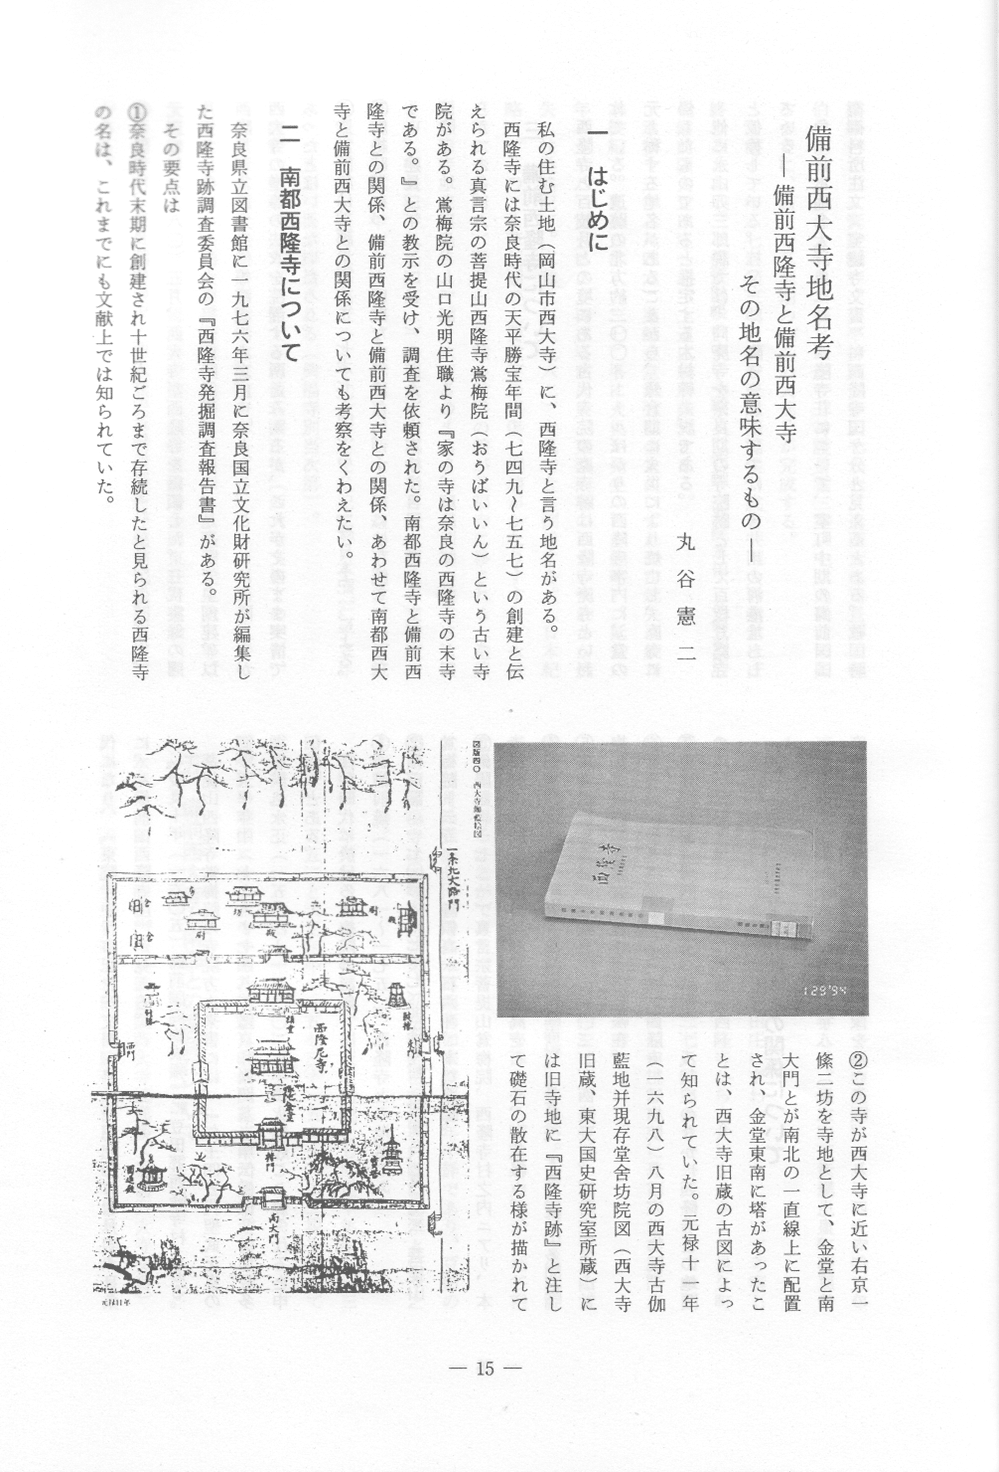 備前西大寺地名考
―備前西隆寺と備前西大寺
その地名の意味するもの―
丸谷憲二
一 はじめに
私の住む土地（岡山市西大寺）に、西隆寺と言う地名がある。
西隆寺には奈良時代の天平勝宝年間（七四九～七五七）の創建と伝
えられる真言宗の菩提山西隆寺鴬梅院（おうばいいん）という古い寺
院がある。鴬梅院の山口光明住職より『家の寺は奈良の西隆寺の末寺
である。』との教示を受け、調査を依頼された。南都西隆寺と備前西
隆寺との関係、備前西隆寺と備前西大寺との関係、あわせて南都西大
寺と備前西大寺との関係についても考察をくわえたい。
二 南都西隆寺について
奈良県立図書館に一九七六年三月に奈良国立文化財研究所が編集し
た西隆寺跡調査委員会の『西隆寺発掘調査報告書』がある。
その要点は
①奈良時代末期に創建され十世紀ごろまで存続したと見られる西隆寺
の名は、これまでにも文献上では知られていた。
西隆寺
1 29'94
②この寺が西大寺に近い右京一
條二坊を寺地として、金堂と南
大門とが南北の一直線上に配置
され、金堂東南に塔があったこ
とは、西大寺旧蔵の古図によっ
て知られていた。元禄十一年
（一六九八）八月の西大寺古伽
藍地并現存堂舎坊院図（西大寺
旧蔵、東大国史研究室所蔵）に
は旧寺地に『西隆寺跡』と注し
て礎石の散在する様が描かれて
図版四〇 西大寺伽藍絵図
一条北大路門
西隆尼寺
南大門
元禄11年
― 15 ―